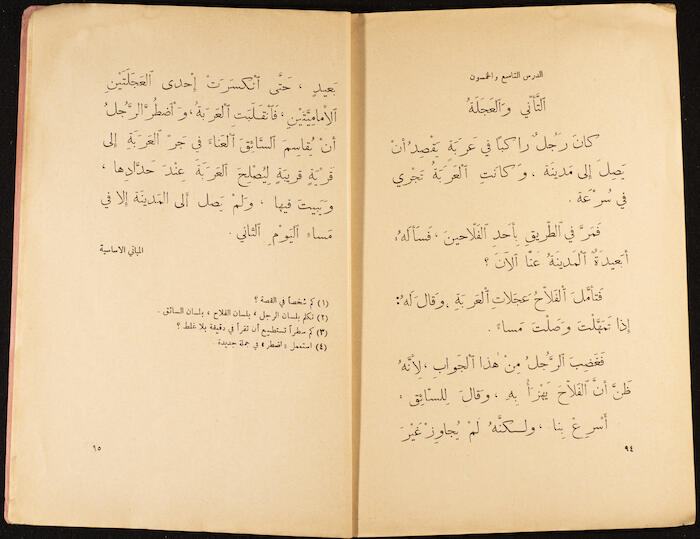 الدرس التاسع والخمسون
التَّأَنِّي وَالْعَجَلَةُ
كانَ رَجُلٌ راكِباً في عَرَبَةٍ يَقْصِدُ أنْ
يَصِلَ إلى مَدينَة ، وَكانَتِ الْعَرَبَةُ تَجْري
في سُرْعَة .
فَمَرَّ في الْطَّريقِ بِأحَدِ الْفَلاّحينَ ، فَسَألَهُ :
أبَعيدَةٌ الْمَدينَةُ عَنّا الْآنَ ؟
فَتَأمَّلَ الْفَلاّحُ عَجَلاتِ الْعَرَبَةِ ، وَقالَ لَهُ :
إذا تَمَهَّلْتَ وَصَلْتَ مَساءً .
فَغَضِبَ الْرَّجُلُ مِنْ هٰذا الْجَوابِ ، لِأنَّهُ
ظَنَّ أنَّ الْفَلاّحَ يَهْزَأُ بِهِ ، وَقالَ لِلسّائِقِ ،
أسْرِعْ بِنا ، ولٰكِنَّهُ لَمْ يُجاوِزْ غَيْرَ
٩٤
بَعيدٍ ، حَتَّى انْكَسَرَتْ إحْدى الْعَجَلَتَيْنِ
الْأمامِيَّتَيْنِ ، فَانْقَلَبَتِ الْعَرَبَةُ ، وَاضْطُرَّ الرَّجُلُ
أنْ يُقاسِمَ السّائِقَ الْعَناءَ في جَرِّ الْعَرَبَةِ إلى
قَرْيَةٍ قَريبَةٍ لِيُصْلِحَ الْعَرَبَةَ عِنْدَ حَدّادِها ،
وَيَبيتَ فيها ، وَلَمْ يَصِل ألى المَدينَةِ إلا في
مَساءِ الْيَوْمِ الْثّاني .
المباني الاساسية
(١) كم شخصاً في القصة ؟
(٢) تكلم بلسان الرجل ، بلسان الفلاح ، بلسان السائق .
(٣) كم سطراً تستطيع أن تقرأ في دقيقة بلا غلط ؟
(٤) استعمل «اضطر» في جملة جديدة .
٩٥